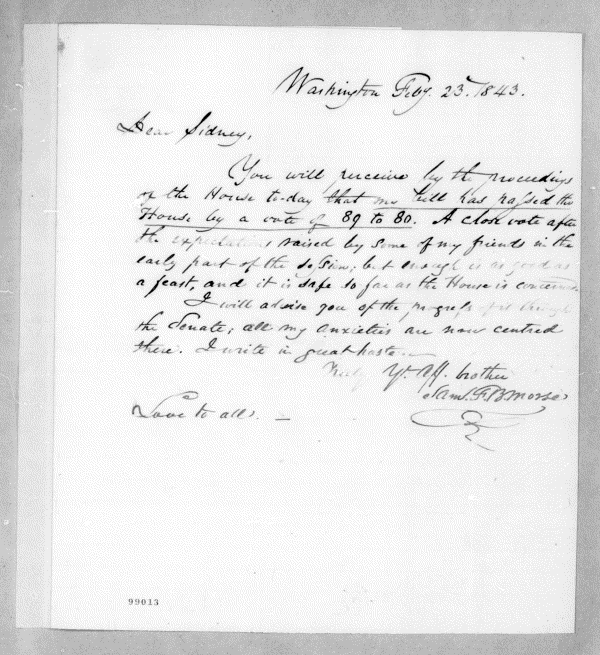 Washington Feby. 23d. 1843.
Dear Sidney,
You will perceive by the proceedings
of the House to-day that my bill has passed the
House by a vote of 89 to 80. A close vote after
the expectations raised by some of my friends in the
early part of the session; but enough is as good as
a feast, and it is safe so far as the House is concerned.
I will advise you of the progress of it through
the Senate; all my anxieties are now centred
there. I write in great haste.
Yr. Aff. brother
Saml. F. B. Morse
Love to all. —
99013